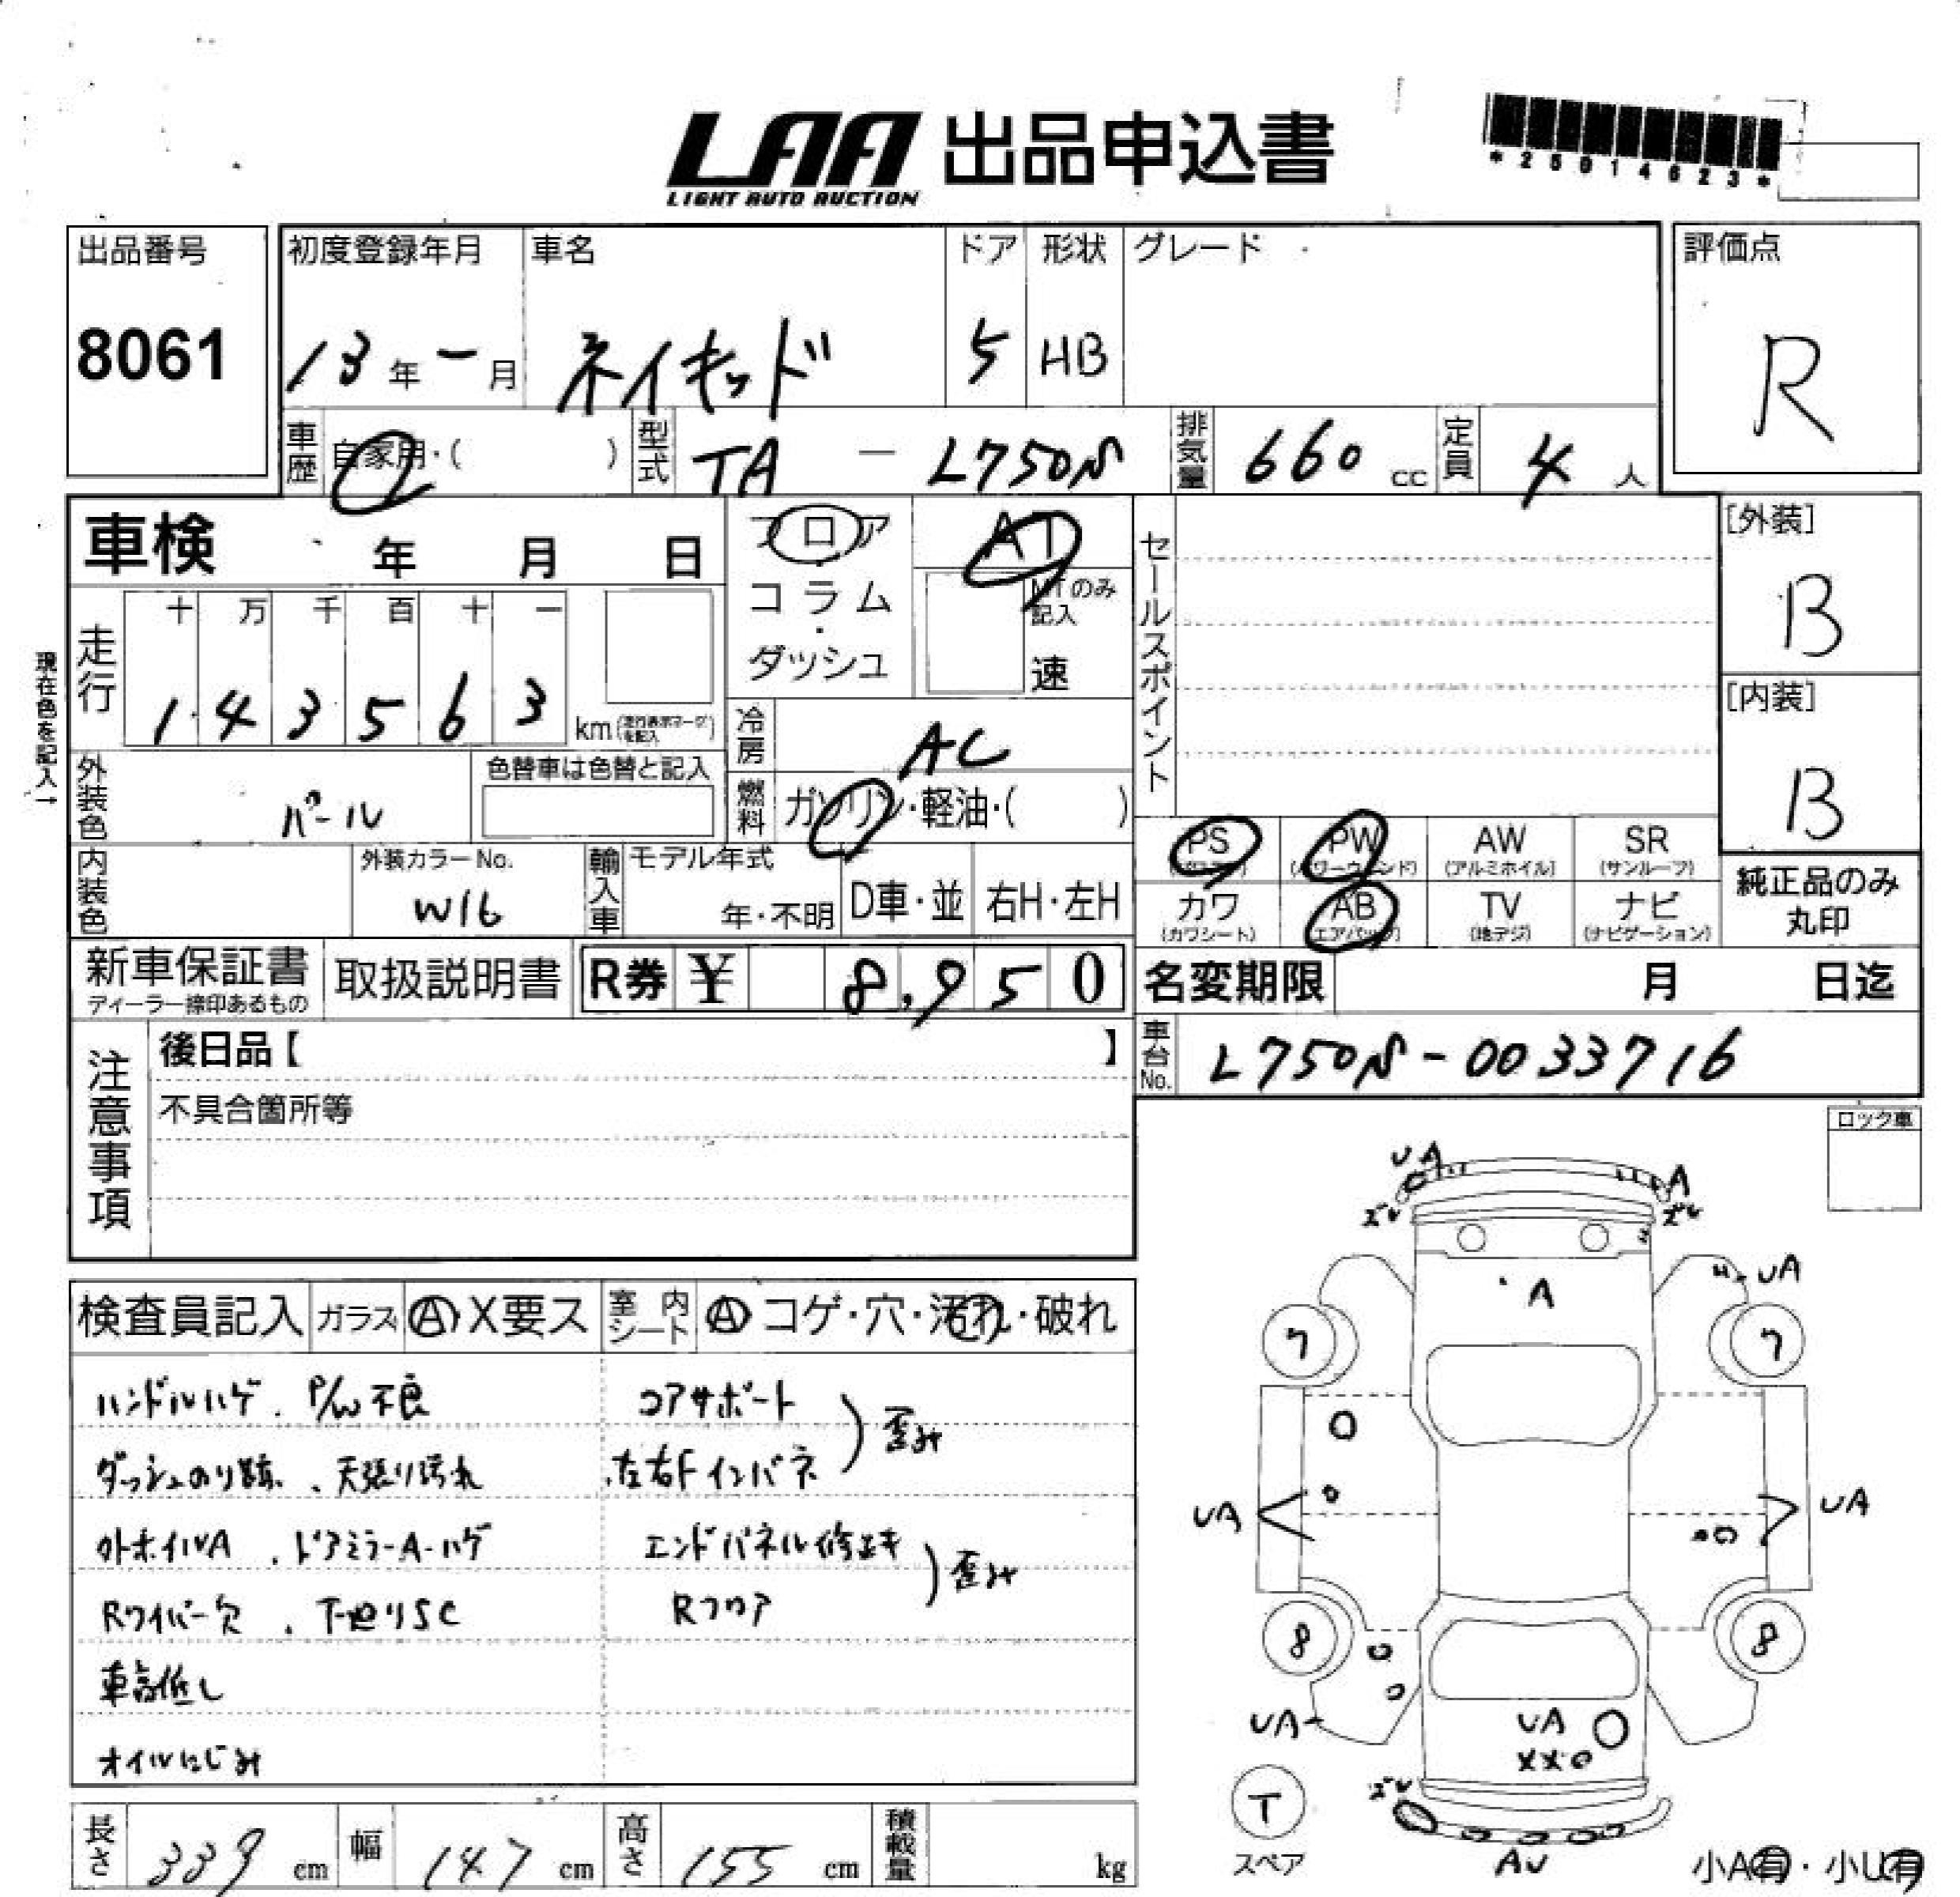 LAA 出品申込書
LIGHT AUTO AUCTION
*25014623*
出品番号
8061
初度登録年月 車名 ドア 形状 グレード
13年 一 月 ネイキッド 5 HB
評価点
R
車歴 自家用・( ) 型式 TA － L750S 排気量 660 cc 定員 4 人
車検 年 月 日
フロア
コラム・
ダッシュ
AT
MTのみ記入
速
セールスポイント
[外装]
B
[内装]
B
現在色を記入→
走行
十 万 千 百 十 一
1 4 3 5 6 3 km(走行表示マークを記入)
冷房 AC
燃料 ガソリン・軽油・( )
外装色 パール
色替車は色替と記入
内装色
外装カラーNo.
W16
輸入車
モデル年式
年・不明
D車・並
右H・左H
PS PW (パワーウィンド) AW (アルミホイル) SR (サンルーフ)
カワ (カワシート) AB (エアバッグ) TV (地デジ) ナビ (ナビゲーション)
純正品のみ
丸印
新車保証書
ディーラー捺印あるもの
取扱説明書
R券 ¥ 8,950
名変期限 月 日迄
車台No. L750S-0033716
注意事項
後日品【 】
不具合箇所等
ロック車
検査員記入 ガラス A X要ス 室内シート A コゲ・穴・汚れ・破れ
ハンドルハゲ . P/W不良
ダッシュのり跡 . 天張り汚れ
外ホイルA . ドアミラーA・ハゲ
Rワイパー欠 . 下廻りSC
車高低し
オイルにじみ
コアサポート
左右Fインパネ
歪み
エンドパネル修正キ
Rフロア
歪み
UA A
ズレ ズレ
A UA
7 7
UA UA
8 8
UA
UA
XX
ズレ
T
スペア
AU
小A有・小U有
長さ 339 cm 幅 147 cm 高さ 155 cm 積載量 kg